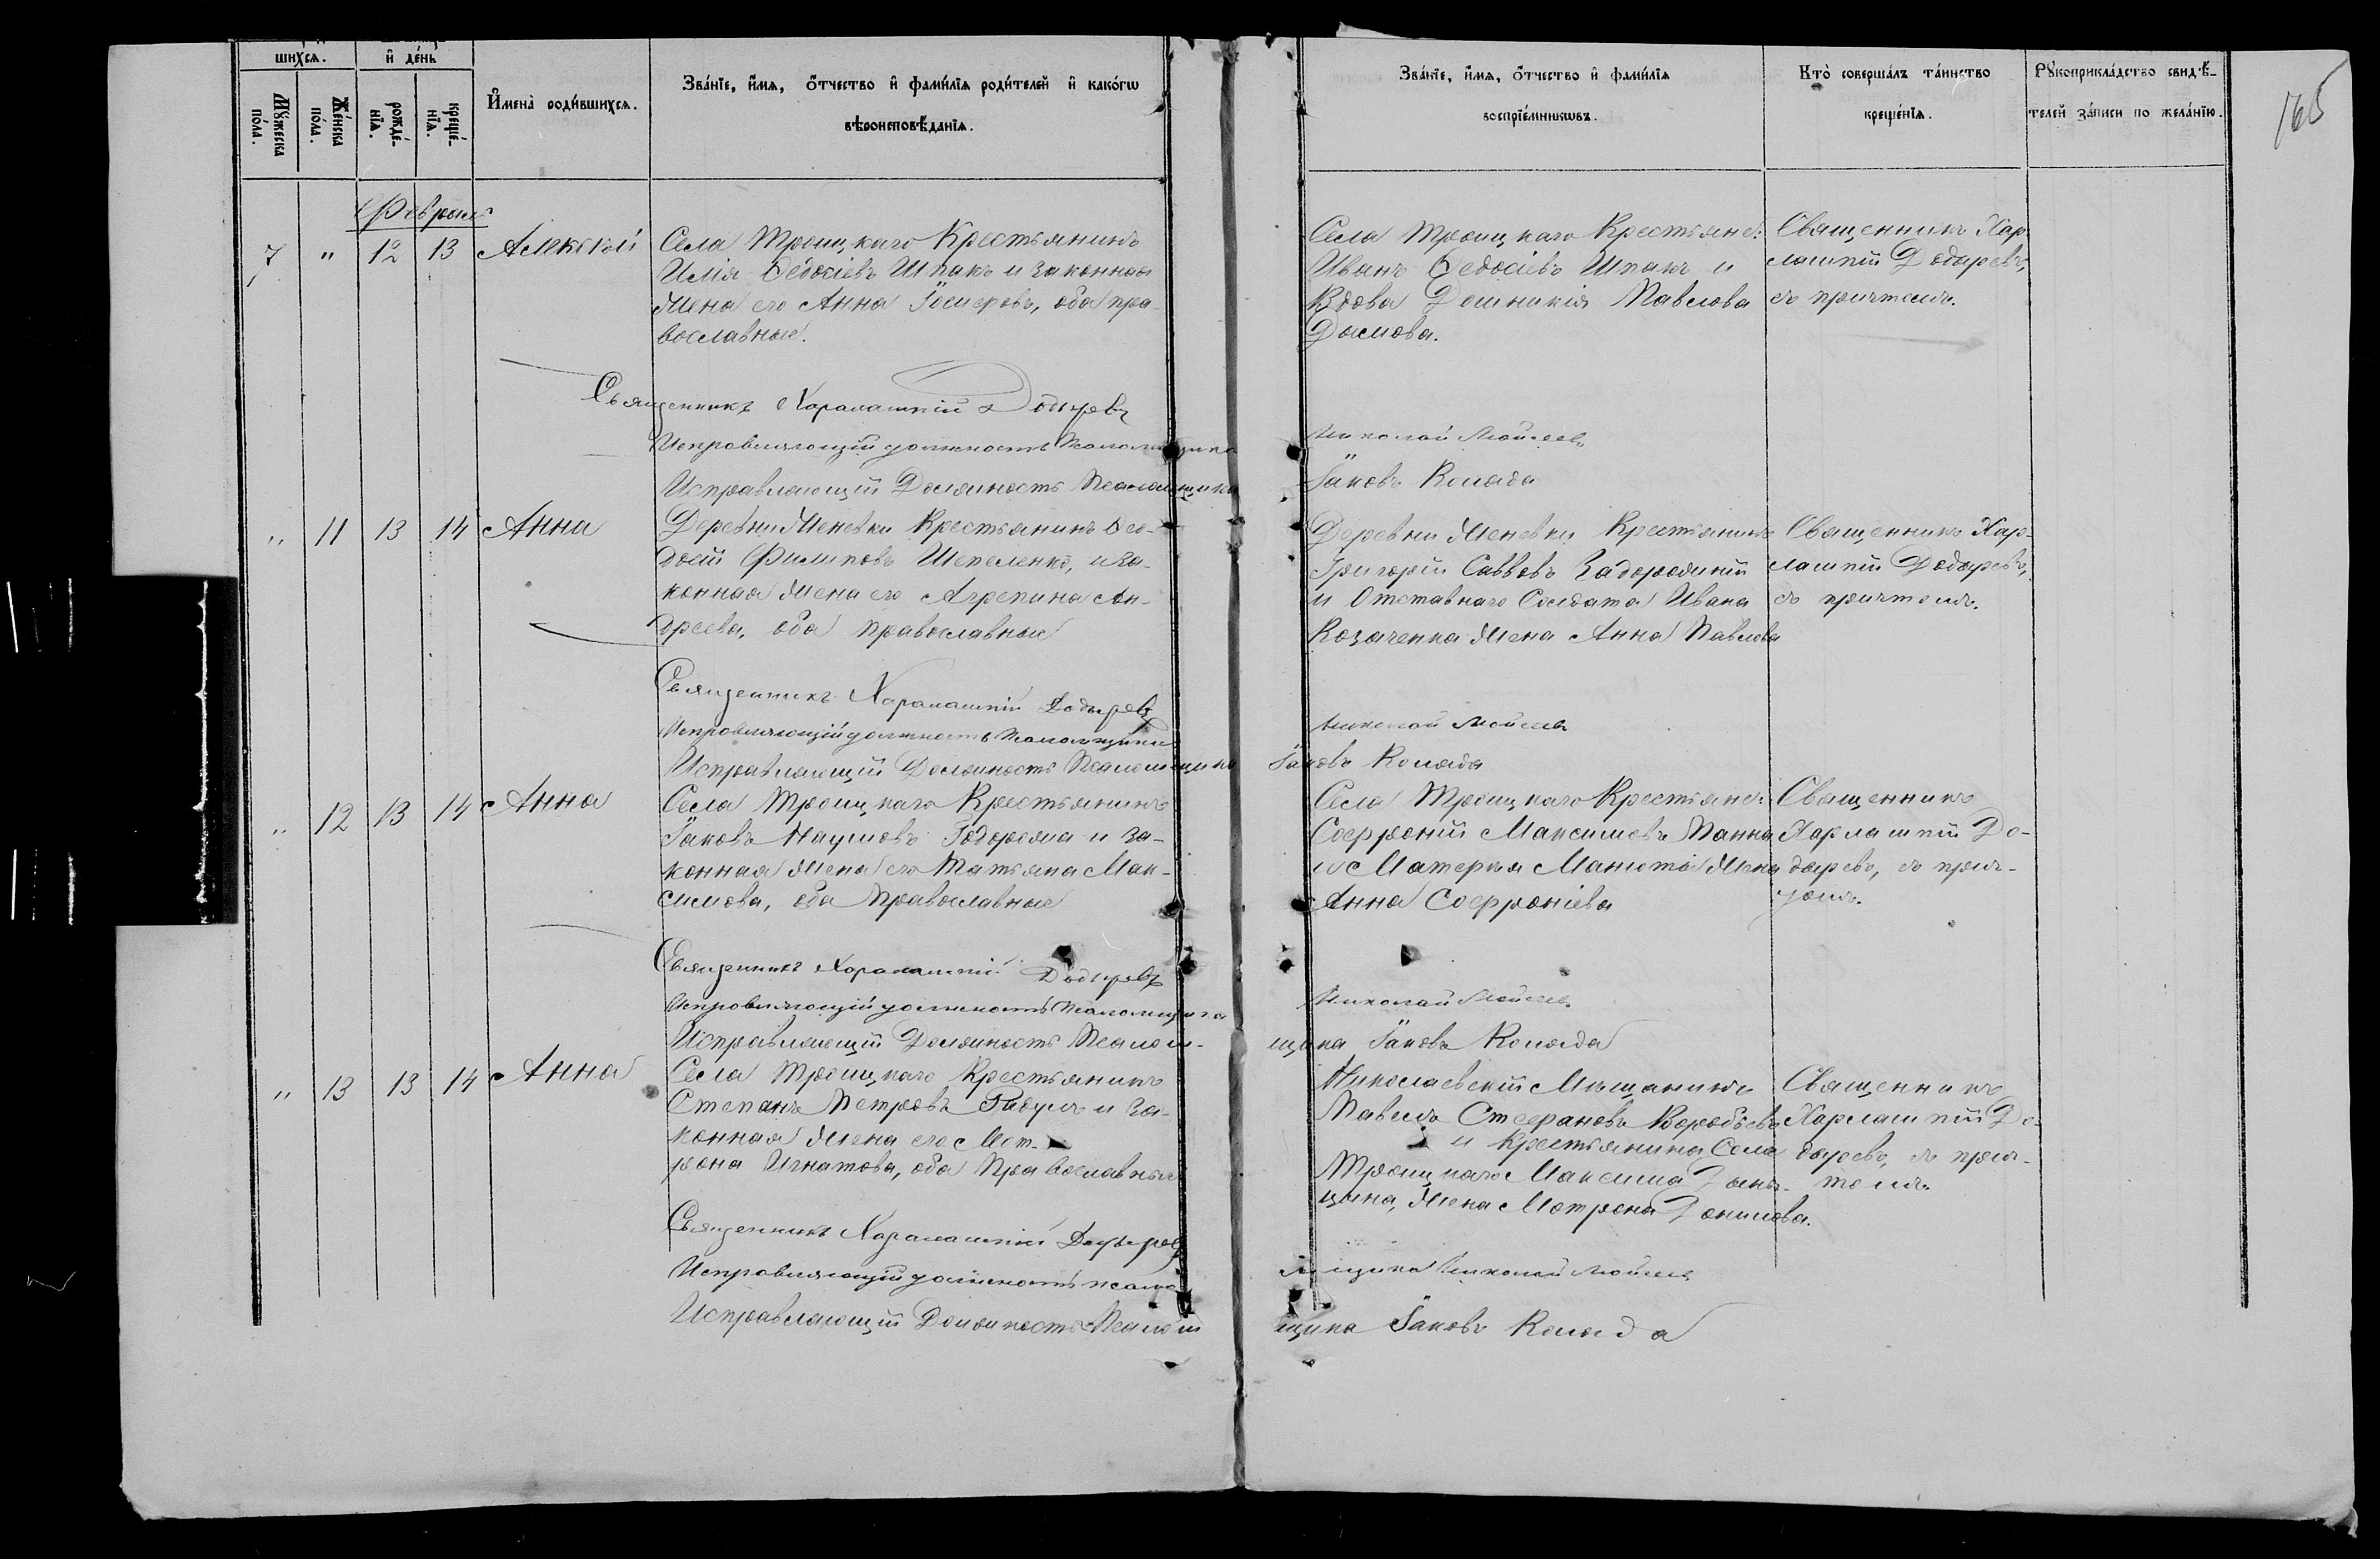 шихся.
и день
Мужеска пола.
Женска пола.
рожде-нія.
креще-нія.
Имена родившихся.
Званіе, имя, отчество и фамилія родителей и какогω
вѣроисповѣданія.
Званіе, имя, отчество и фамилія
воспріемниковъ.
Кто совершалъ таинство
крещенія.
Рукоприкладство свидѣ-
телей записи по желанію.
165
Февраль
7 " 12 13 Алексѣй
Села Троицкаго Крестьянинъ
Илія Ѳедосіевъ Шпакъ и законная
жена его Анна оба пра-
вославные.
Села Троицкаго Крестьяне:
Иванъ Ѳедосіевъ Шпакъ и
Вдова Домникія Павлова
Священникъ Хар-
лампій Додыревъ,
съ причтомъ.
Священникъ Харалампій Додыревъ
Исправляющій должность Псаломщика Николай Мойсеевъ
Исправляющій Должность Псаломщика Іаковъ Коляда
" 11 13 14 Анна
Деревни Женевки Крестьянинъ Ѳео-
досій Филиповъ Шепеленко, и за-
конная жена его Агрепина Ан-
дреева, оба православные
Деревни Женевки Крестьянинъ
Григорій Саввовъ Задорожній
и Отставнаго Солдата Ивана
Козаченка жена Анна Павлова
Священникъ Хар-
лампій Додыревъ,
съ причтомъ.
Священникъ Харалампій Додыревъ
Исправляющій должность Псаломщика Николай Мойсеевъ
Исправляющій Должность Псаломщика Іаковъ Коляда
" 12 13 14 Анна
Села Троицкаго Крестьянинъ
Іаковъ Наумовъ и за-
конная жена его Татьяна Мак-
симова, оба Православные
Села Троицкаго Крестьяне:
Софроній Максимовъ
жена
Анна Софроніева
Священникъ
Харлампій До-
дыревъ, съ прич-
томъ.
Священникъ Харалампій Додыревъ
Исправляющій должность Псаломщика Николай Мойсеевъ
Исправляющій Должность Псалом-
щика Іаковъ Коляда
" 13 13 14 Анна
Села Троицкаго Крестьянинъ
Степанъ Петровъ и за-
конная жена его Мот-
рона Игнатова, оба Православные
Николаевскій Мѣщанинъ
Павелъ Стефановъ Воробьевъ
и Крестьянина Села
Троицкаго Максима
жена Мотрона Данилова.
Священникъ
Харлампій До-
дыревъ, съ прич-
томъ.
Священникъ Харалампій Додыревъ
Исправляющій должность псалом-
щика Николай Мойсеевъ
Исправляющій Должность Псалом-
щика Іаковъ Коляда